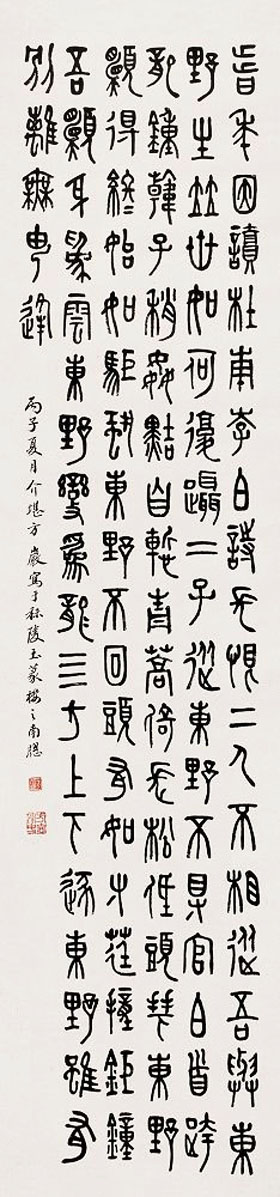 昔年因讀杜甫李白詩長恨二人不相從吾與東
野生竝世如何復躡二子從東野不得官白首跨
龍鐘韓子稍姦黠自慙青蒿倚長松低頭拜東野
願得終始如駏蛩東野不回頭有如寸莛撞鉅鐘
吾願身爲雲東野變爲龍四方上下逐東野雖有
別離無由逢
丙子夏月介堪方巖寫于秣陵玉篆樓之南牕